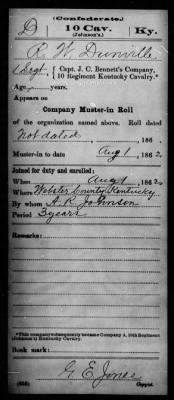 (Confederate.)
D 10 Cav. Ky.
(Johnson's)
R. W. Dunville
1 Sergt., Capt. J. C. Bennett's Company,
10 Regiment Kentucky Cavalry.*
Age years.
Appears on
Company Muster-in Roll
of the organization named above. Roll dated
Not dated, 186 .
Muster-in to date Aug 1, 1862.
Joined for duty and enrolled:
When Aug 1, 1862.
Where Webster County Kentucky
By whom A. R. Johnson
Period 3 years
Remarks:
*This company subsequently became Company A, 10th Regiment
(Johnson's) Kentucky Cavalry.
Book mark:
G. E. Jones
Copyist.